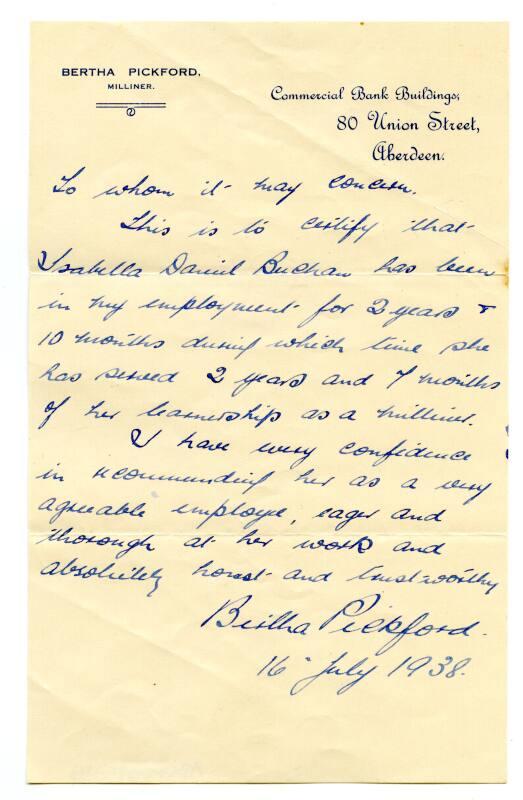 BERTHA PICKFORD,
MILLINER.
Commercial Bank Buildings,
80 Union Street,
Aberdeen.
To whom it may concern.
This is to certify that
Isabella Daniel Buchan has been
in my employment for 2 years &
10 months during which time she
has served 2 years and 7 months
of her learnership as a milliner.
I have every confidence
in recommending her as a very
agreeable employe, eager and
thorough at her work and
absolutely honest and trustworthy
Bertha Pickford.
16 July 1938.